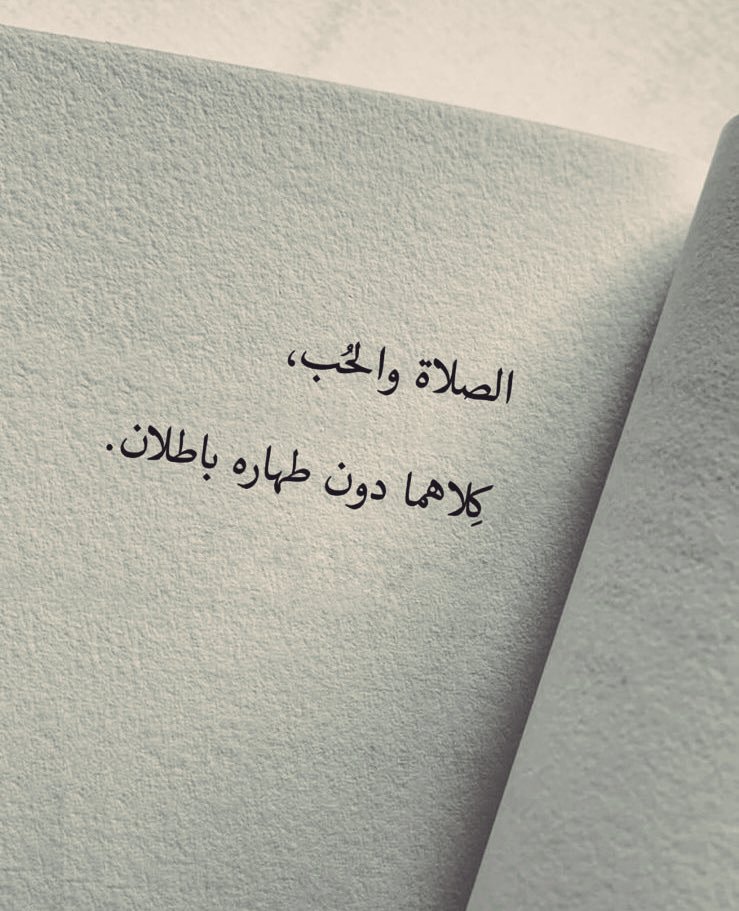 الصلاة والحُب،
كِلاهما دون طهاره باطلان.